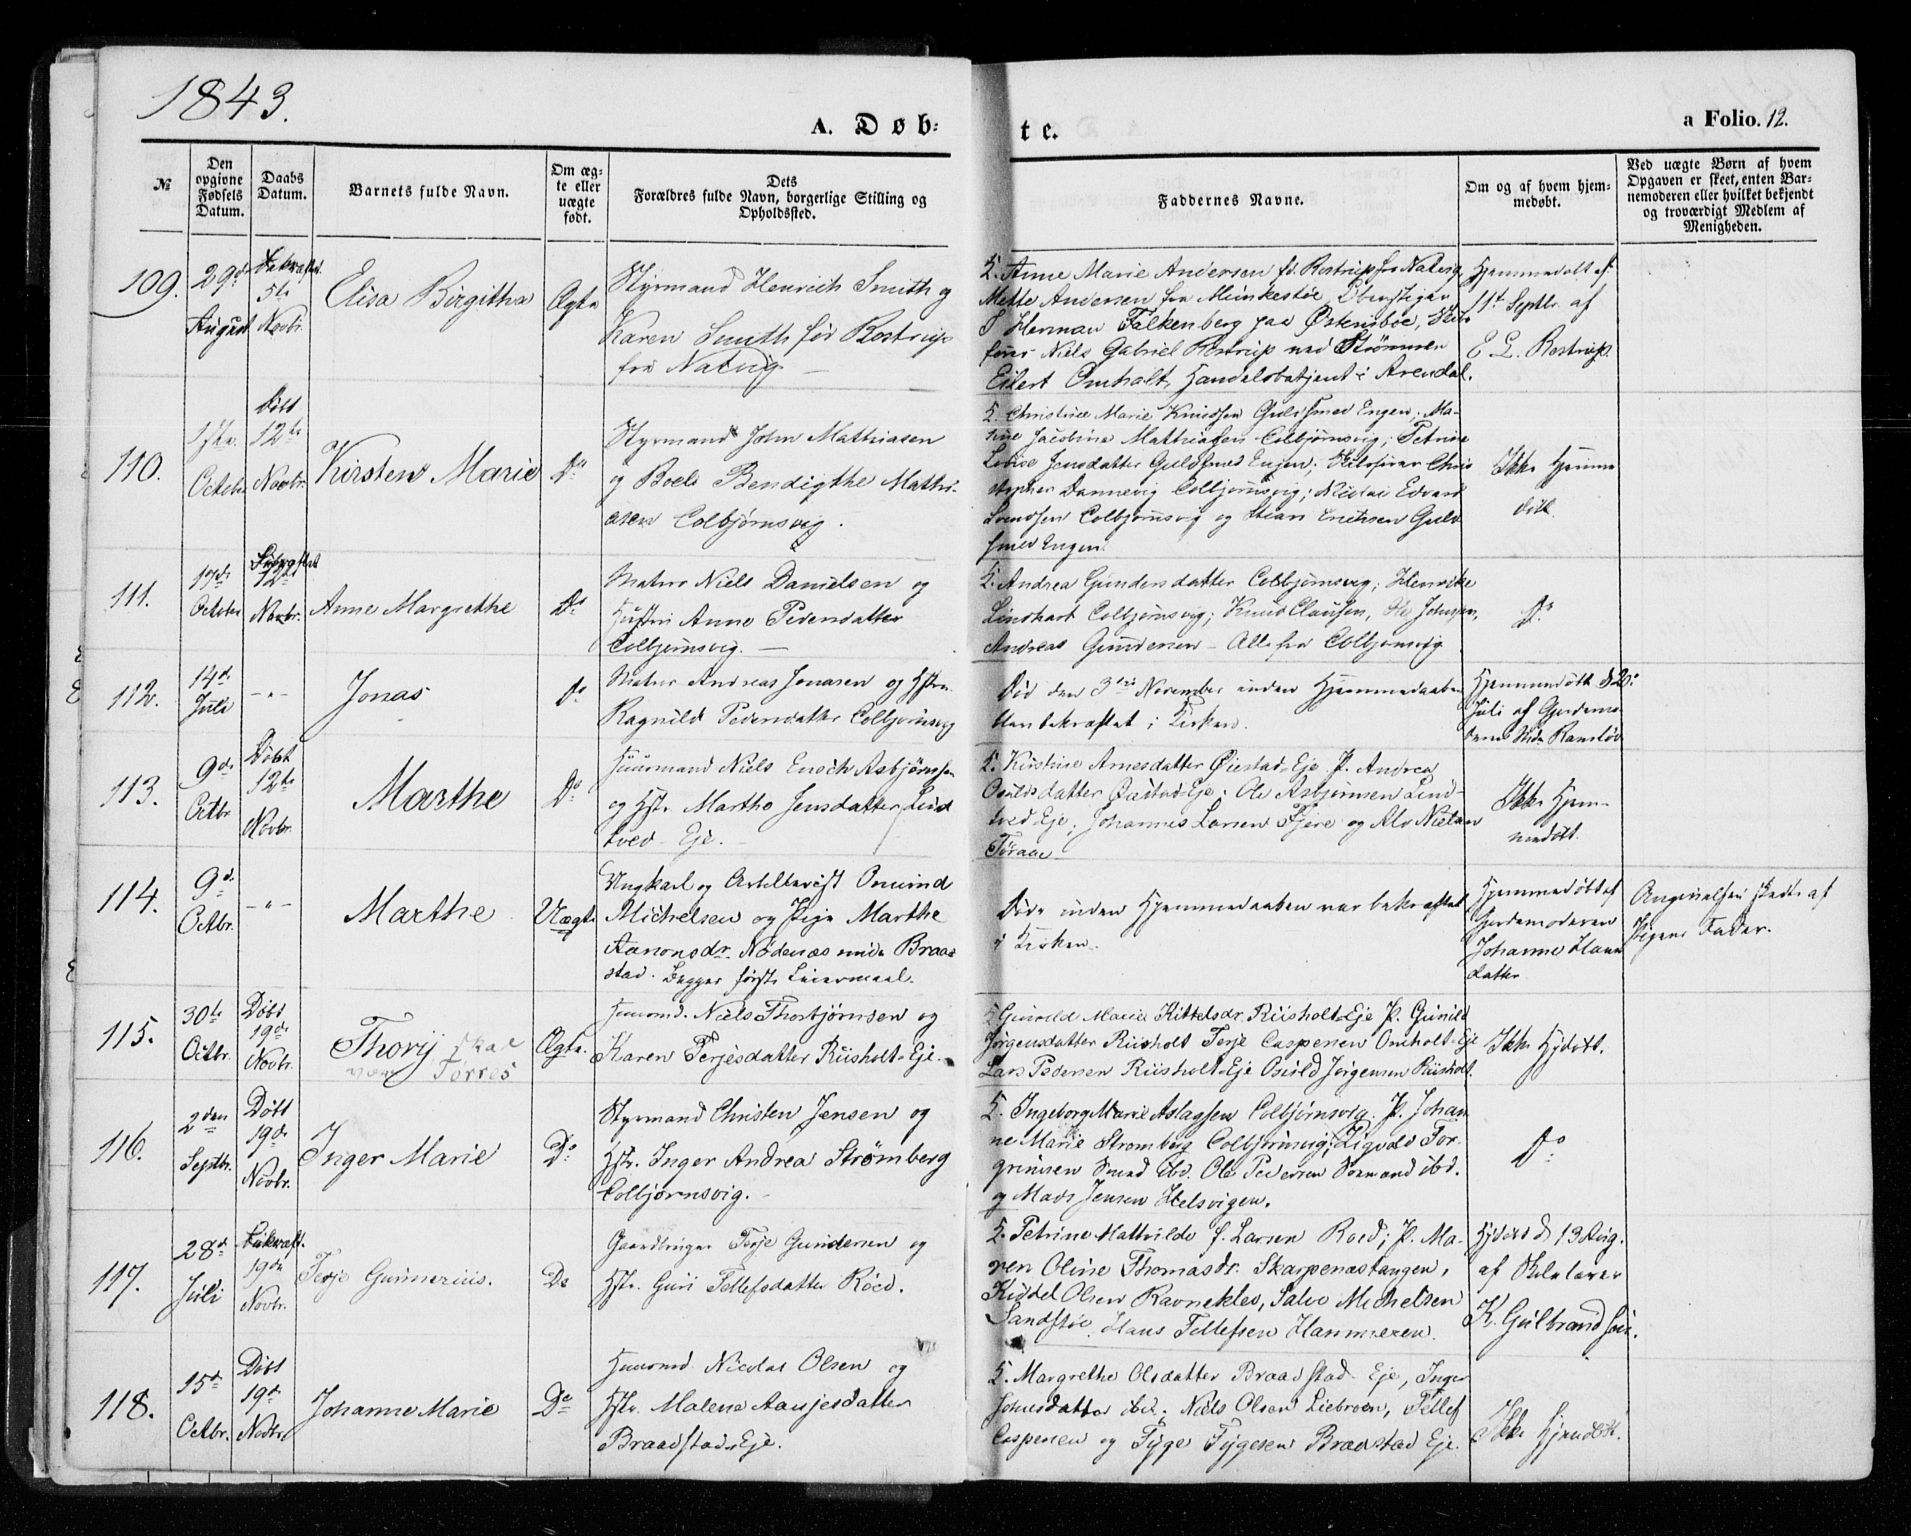 1843.
A. Døb:
te.
a Folio. 12.
№
Den opgivne Fødsels Datum.
Daabs Datum.
Barnets fulde Navn.
Om ægte eller uægte født.
Dets Forældres fulde Navn, borgerlige Stilling og Opholdssted.
Faddernes Navne.
Om og af hvem hjemmedøbt.
Ved uægte Børn af hvem Opgaven er skeet, enten Barnemoderen eller hvilket bekjendt og troværdigt Medlem af Menigheden.
109.
29de
August
5te
Novbr.
Elisa Birgitha
Ægte
Styrmand Henrich Smith og
Karen Smith før Rostrup
fra Natvig
Anne Marie Andersen fd. Rostrup fra Natvig,
Mette Andersen fra Munkestøe,
Herman Falkenberg paa Østensboe,
Niels Gabriel Rostrup ved Strømmen
Eilert Omholt, Handelsbetjent i Arendal.
Hjemmedøbt
11te Septbr. af
E. L. Rostrup.
110.
17de
October
Døbt
12te
Novbr.
Kirsten Marie
Do
Styrmand John Mathiasen
og Boele Bendigthe Mathi-
asen Colbjørnsvig.
Christine Marie Knudsen Guldsmed Engen; Ma-
Jacobine Mathiasen Colbjørnsvig; Petrine
Lovise Jensdatter Guldsmed Engen; Chris
stopher Dannevig Colbjørnsvig; Nicolai Edvard
Svendsen Colbjørnsvig og Stian Erichsen Guld
smed Engen.
Ikke Hjemme
døbt.
111.
17de
October
12te
Novbr.
Anne Margrethe
Do
Matros Niels Danielsen og
Hustru Anne Pedersdatter
Colbjørnsvig.
Andrea Gundersdatter Colbjørnsvig; Henrike
Colbjørnsvig; Knud Clausen,
Andreas Gundersen – Alle fra Colbjørnsvig
Do
112.
14de
Juli
– " –
Jonas
Do
Matros Andreas Jonasen og Hstru.
Ragnild Pedersdatter Colbjørnsvig
Død den 3die November inden Hjemmedaaben
blev bekræftet i Kirken.
Hjemmedøbt d 20de
Juli af Gjordemo-
113.
9de
Octbr.
Døbt
12te
Novbr.
Marthe
Do
Huusmand Niels Enoch Asbjørnsen
og Hstr. Marthe Jensdatter Lind
tved-Eje.
Kirstine Arnesdatter Øiestad-Eje P. Andrea
Osulds datter Øiestad-Eje; Ole Asbjørnsen Lind-
tved Eje; Johannes Larsen Fjære og Alv Nielsen
Ikke Hjem-
medøbt.
114.
9de
Octbr.
– " –
Marthe
Uægte
Ungkarl og Omund
Michelsen og Pige Marthe
Aanonsdr. Nødenæs Braad
stad. Begges første Leiermaal.
Døde inden Hjemmedaaben var bekræftet
i Kirken.
Hjemmedøbt af
Gjordemoderen
Johanne Hans
datter
Angivelsen skede af
Pigens Fader.
115.
30te
Octbr.
Døbt
19de
Novbr.
Thorij skal
være Torres
Ægte.
Huusmd. Niels Thorbjørnsen og
Karen Terjesdatter Riisholt-Eje.
Gunild Marie Kittelsdr. Riisholt-Eje P. Gunild
Jørgensdatter Riisholt Terje Caspersen Omholt-Eje
Lars Pedersen Riisholt-Eje Osuld Jørgensen Riisholt.
Ikke Hjdøbt.
116.
2den
Septbr.
Døbt
19de
Novbr.
Inger Marie
Do
Styrmand Christen Jensen og
Hstr. Inger Andrea Strømberg
Colbjørnsvig.
Ingeborg Marie Aslagsen Colbjørnsvig. P. Johan
ne Marie Strømberg Colbjørnsvig; Tor-
grimsen Smed ibd. Ole Pedersen Sømand ibd.
og Mads Jensen Helsvigen.
Do
117.
28de
Juli
Bekræft.
19de
Novbr.
Terje Gunnerius.
Do
Gaardbruger Terje Gundersen og
Hstr. Guri Tellefsdatter Röed.
Petrine Mathilde f. Larsen Roed; P. Ma-
ren Oline Thomasdr. Skarpenæstangen,
Kiddel Olsen Ravneklev, Salve Michelsen
Sandstøe, Hans Tellefsen Hammeren.
Hjdøbt d 13 Aug.
af Skolelærer
K. Gulbrandsen.
118.
15de
Octbr.
Døbt
19de
Novbr.
Johanne Marie
Do
Huusmd. Nicolai Olsen og
Hstr. Malene Aanjesdatter
Braadstad-Eje.
Margrethe Olsdatter Braadstad-Eje, Inger
ibd; Niels Olsen Tellef
Caspersen og Tyge Tygesen Braastad Eje.
Ikke Hjemdøbt.